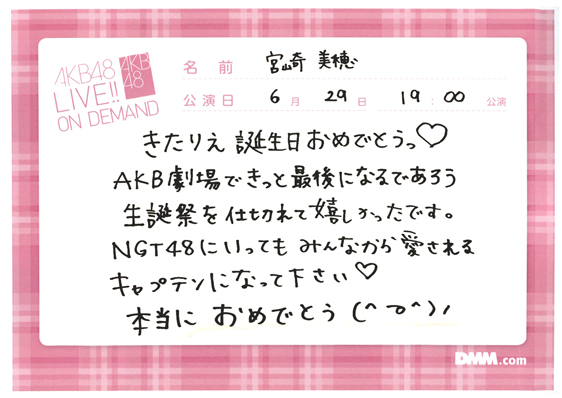 AKB48
LIVE!!
ON DEMAND
AKB
48
名前 宮崎 美穂
公演日 6月 29日 19:00 公演
きたりえ 誕生日おめでとうっ♡
AKB劇場できっと最後になるであろう
生誕祭を仕切れて嬉しかったです。
NGT48にいっても みんなから愛される
キャプテンになって下さい♡
本当に おめでとう (^▽^)ノ
DMM.com